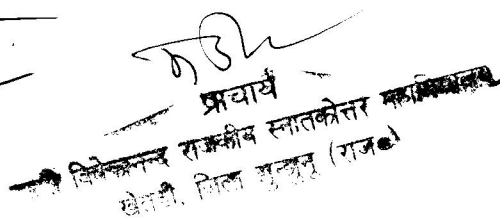 प्राचार्य
विवेकानन्द राजकीय स्नातकोत्तर महाविद्यालय
खेतडी, जिला झुन्झुनू (राज०)